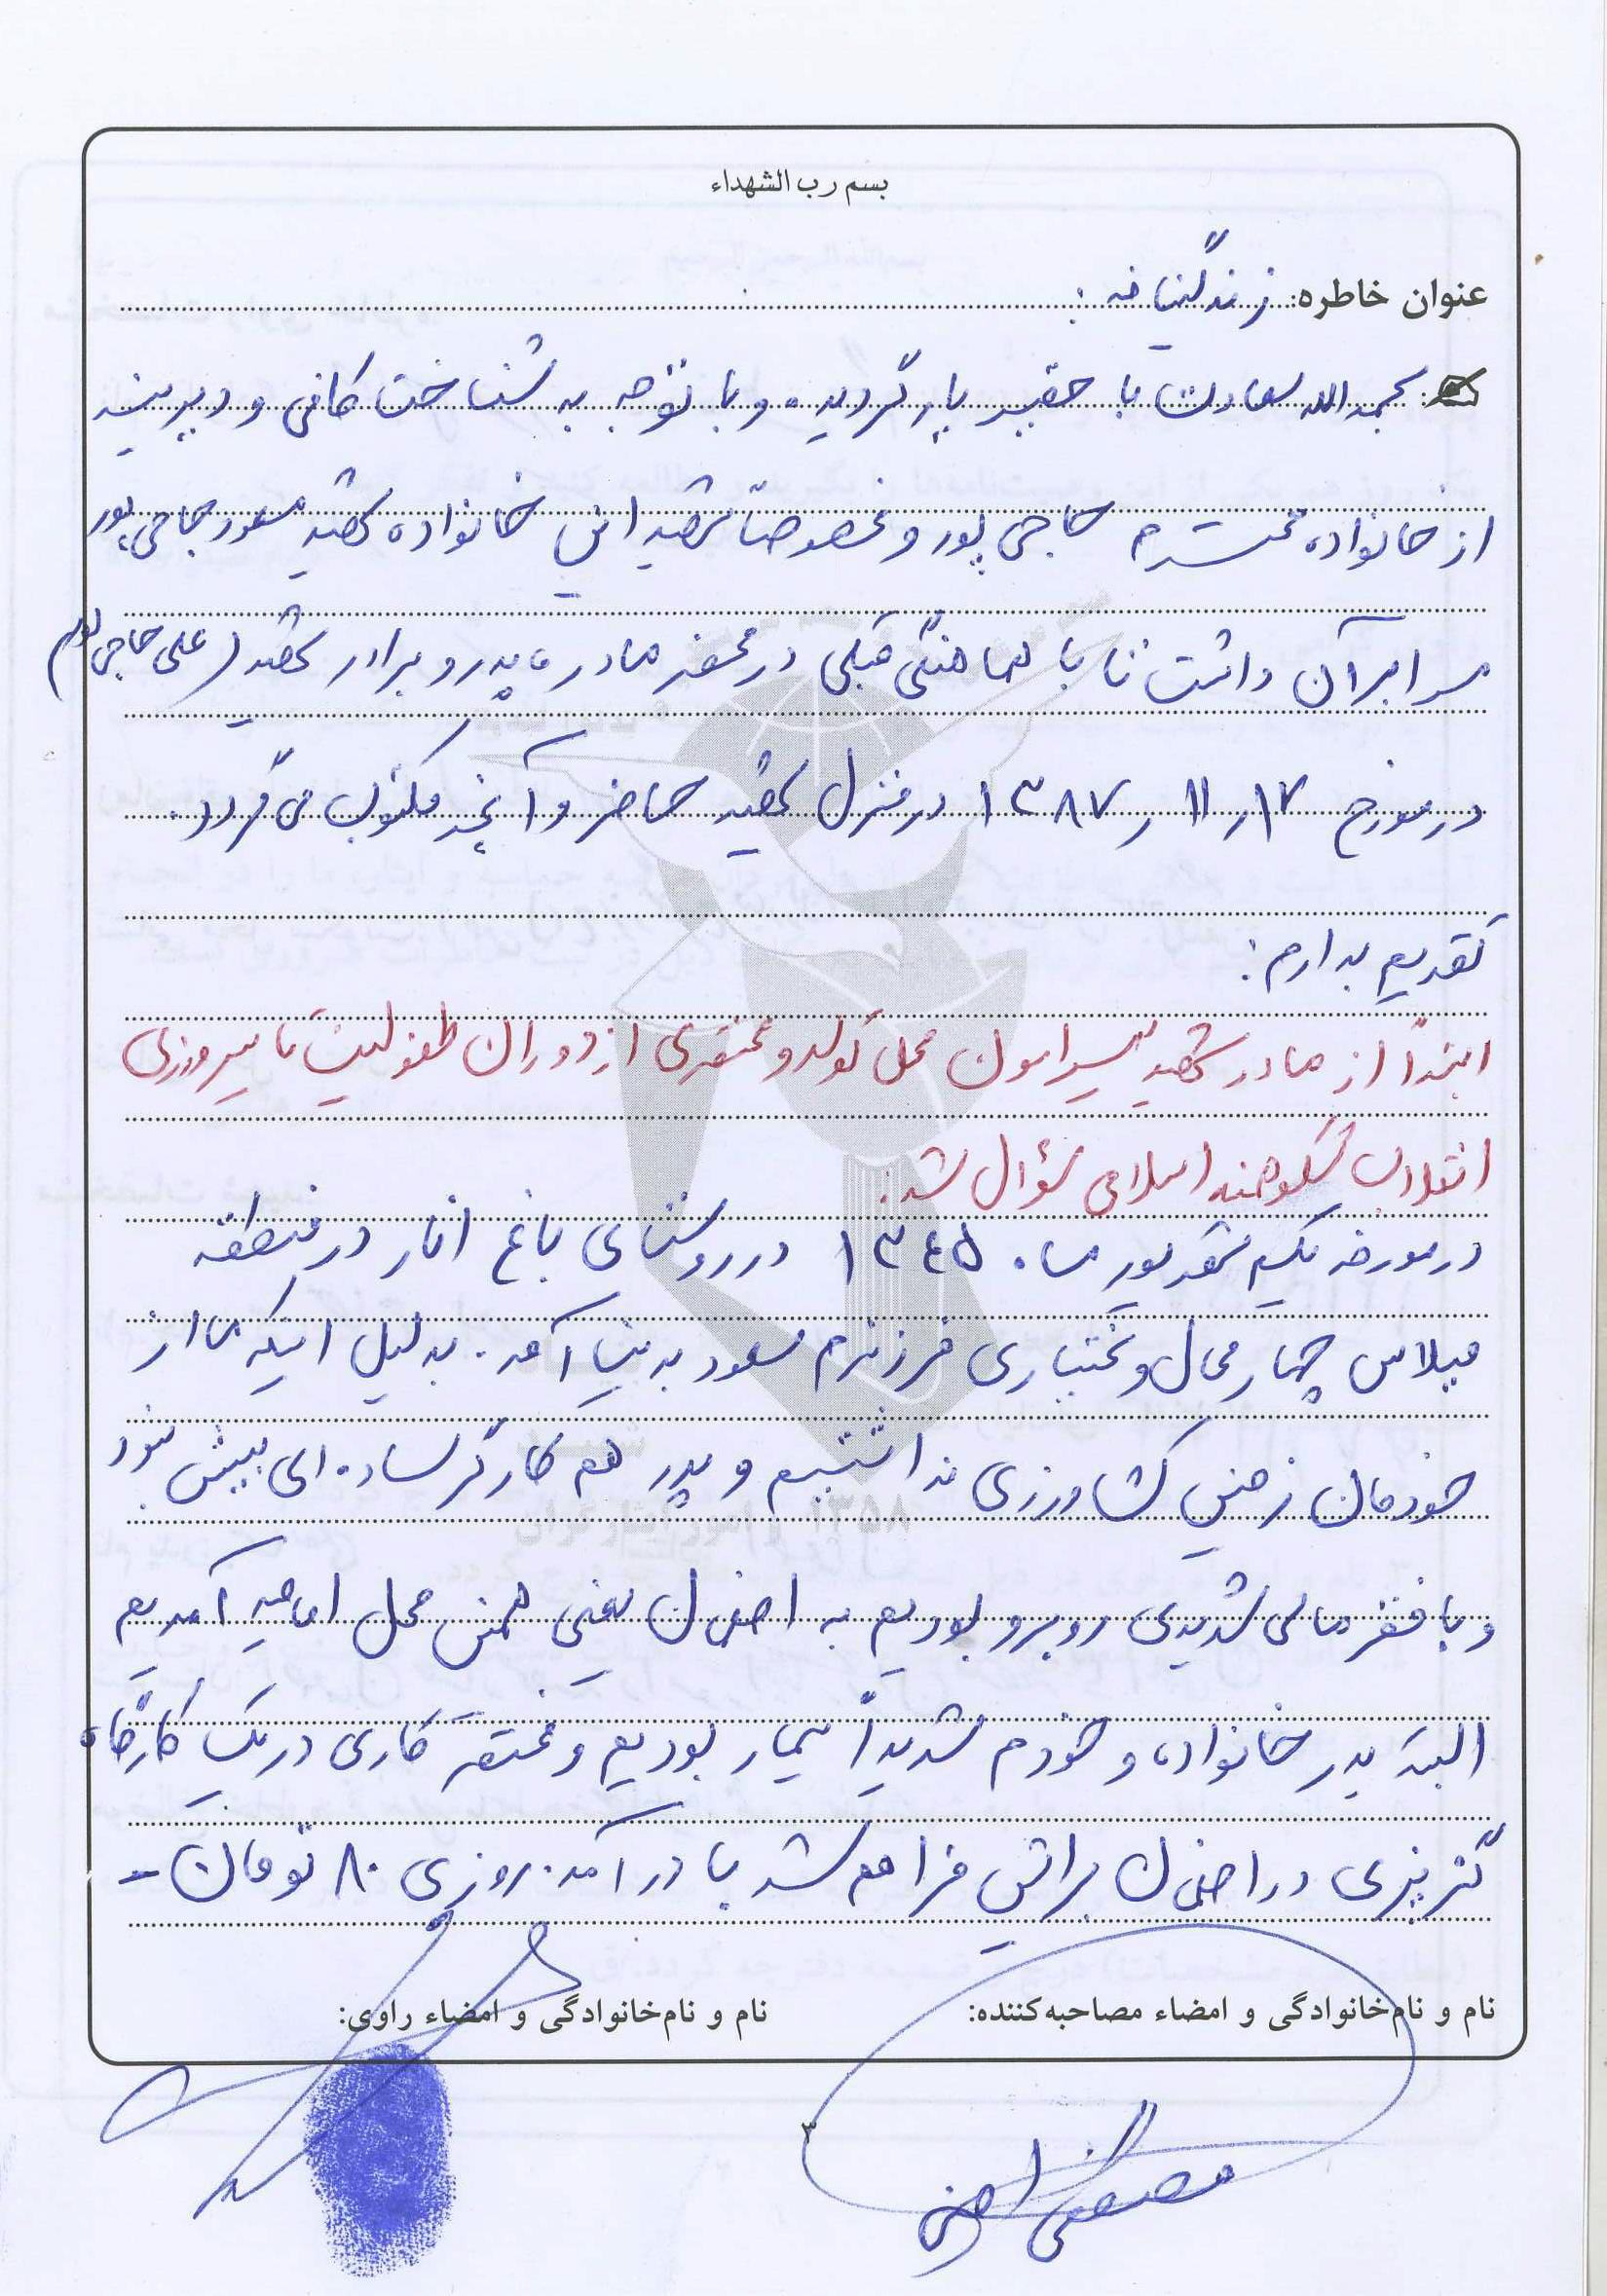 بسم رب الشهداء
عنوان خاطره: زندگینامه:
بحمدالله سعادت با حقیر یار گردیده و با توجه به شناخت کافی و دیرینه
از خانواده محترم حاجی پور و خصوصاً شهید این خانواده شهید مسعود حاجی پور
مرا بر آن داشت تا با هماهنگی قبلی در محضر مادر، پدر و برادر شهید (علی حاجی پور)
در مورخ ۱۷ ر ۱۱ ر ۱۳۸۷ در منزل شهید حاضر و آنچه مکتوب می گردد.
تقدیم بدارم:
ابتدا از مادر شهید پیرامون محل تولد و مختصری از دوران طفولیت تا پیروزی
انقلاب شکوهمند اسلامی سؤال شد:
در مورخه یکم شهریور ماه ۱۳۴۵ در روستای باغ انار در منطقه
میلاس چهارمحال و بختیاری فرزندم مسعود بدنیا آمد. بدلیل اینکه ما از
خودمان زمین کشاورزی نداشتیم و پدر هم کارگر ساده ای بیش نبود
و با فقر مالی شدیدی روبرو بودیم به اصفهان یعنی همین محل امامیه آمدیم
البته پدر خانواده و خودم شدیداً بیمار بودیم و مختصر کاری در یک کارگاه
گزپزی در اصفهان براش فراهم شد با درآمد روزی ۸۰ تومان -
نام و نام‌خانوادگی و امضاء مصاحبه‌کننده:
نام و نام‌خانوادگی و امضاء راوی:
۳
۱۳۵۸